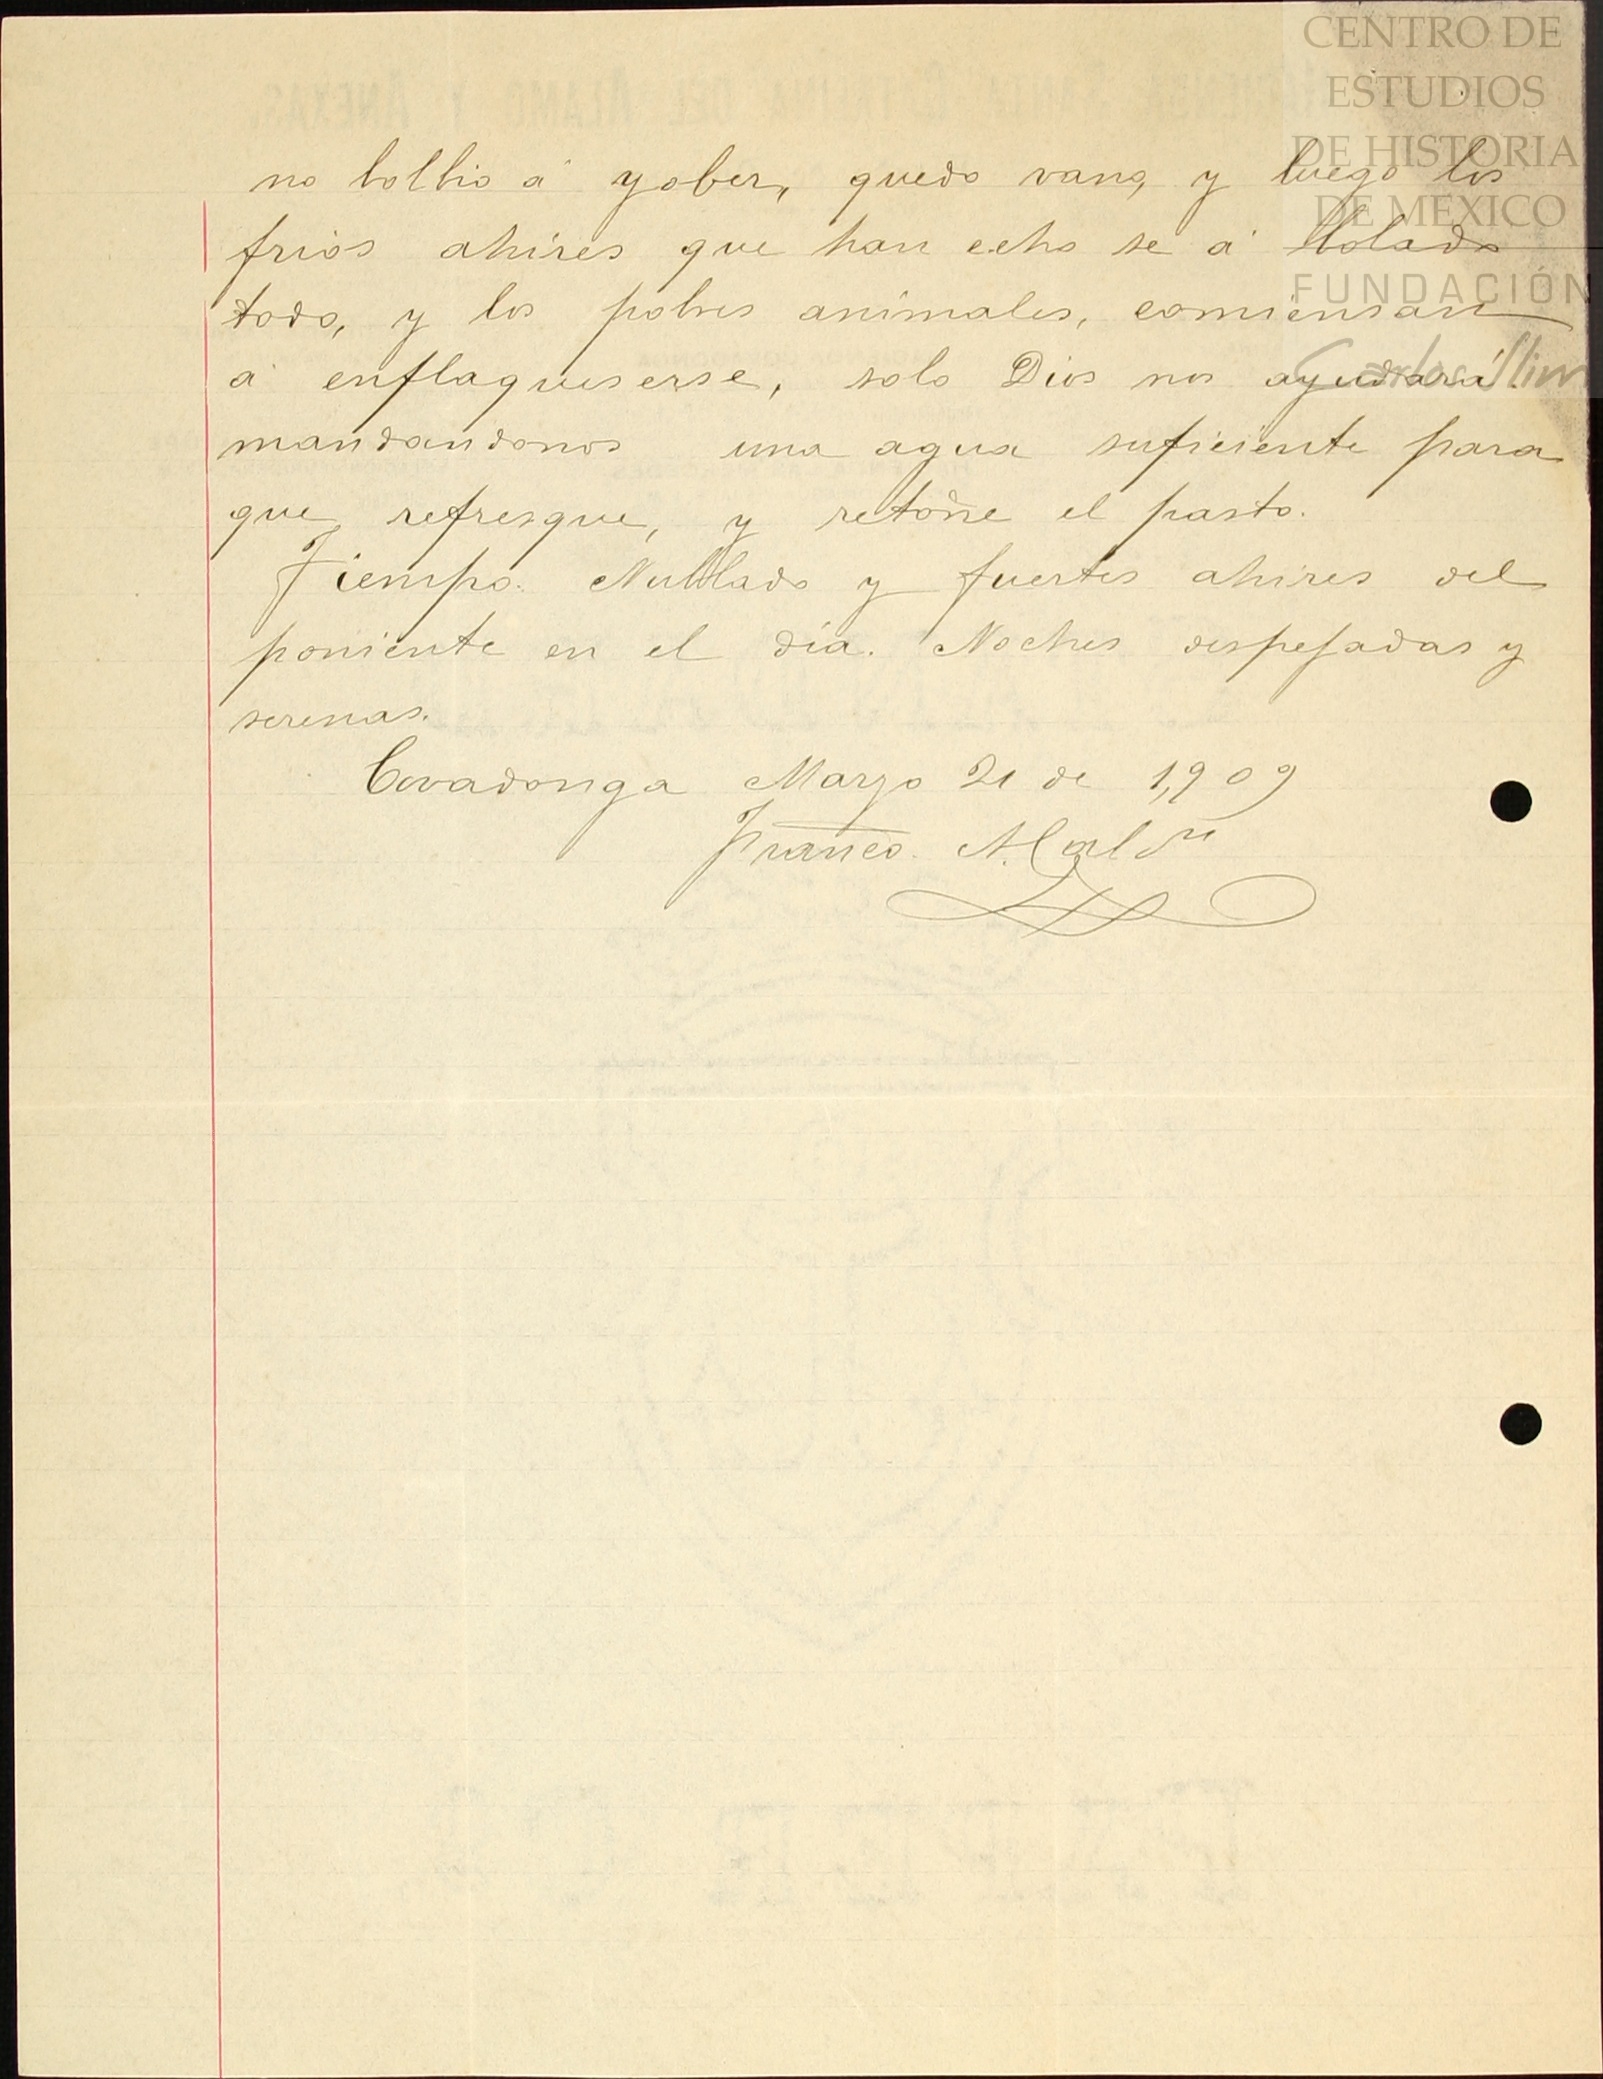 CENTRO DE
ESTUDIOS
DE HISTORIA
DE MÉXICO
FUNDACIÓN
Carlos Slim
no bolbio á yober, quedo vano, y luego los
frios ahires que han echo se á bolado
todo, y los pobres animales, comiensan
á enflaqueserse, solo Dios nos ayudará
mandandonos una agua suficiente para
que refresque, y retoñe el pasto.
Tiempo. Nublado y fuertes ahires del
poniente en el día. Noches despejadas y
serenas.
Covadonga Marzo 21 de 1,909
Franco.